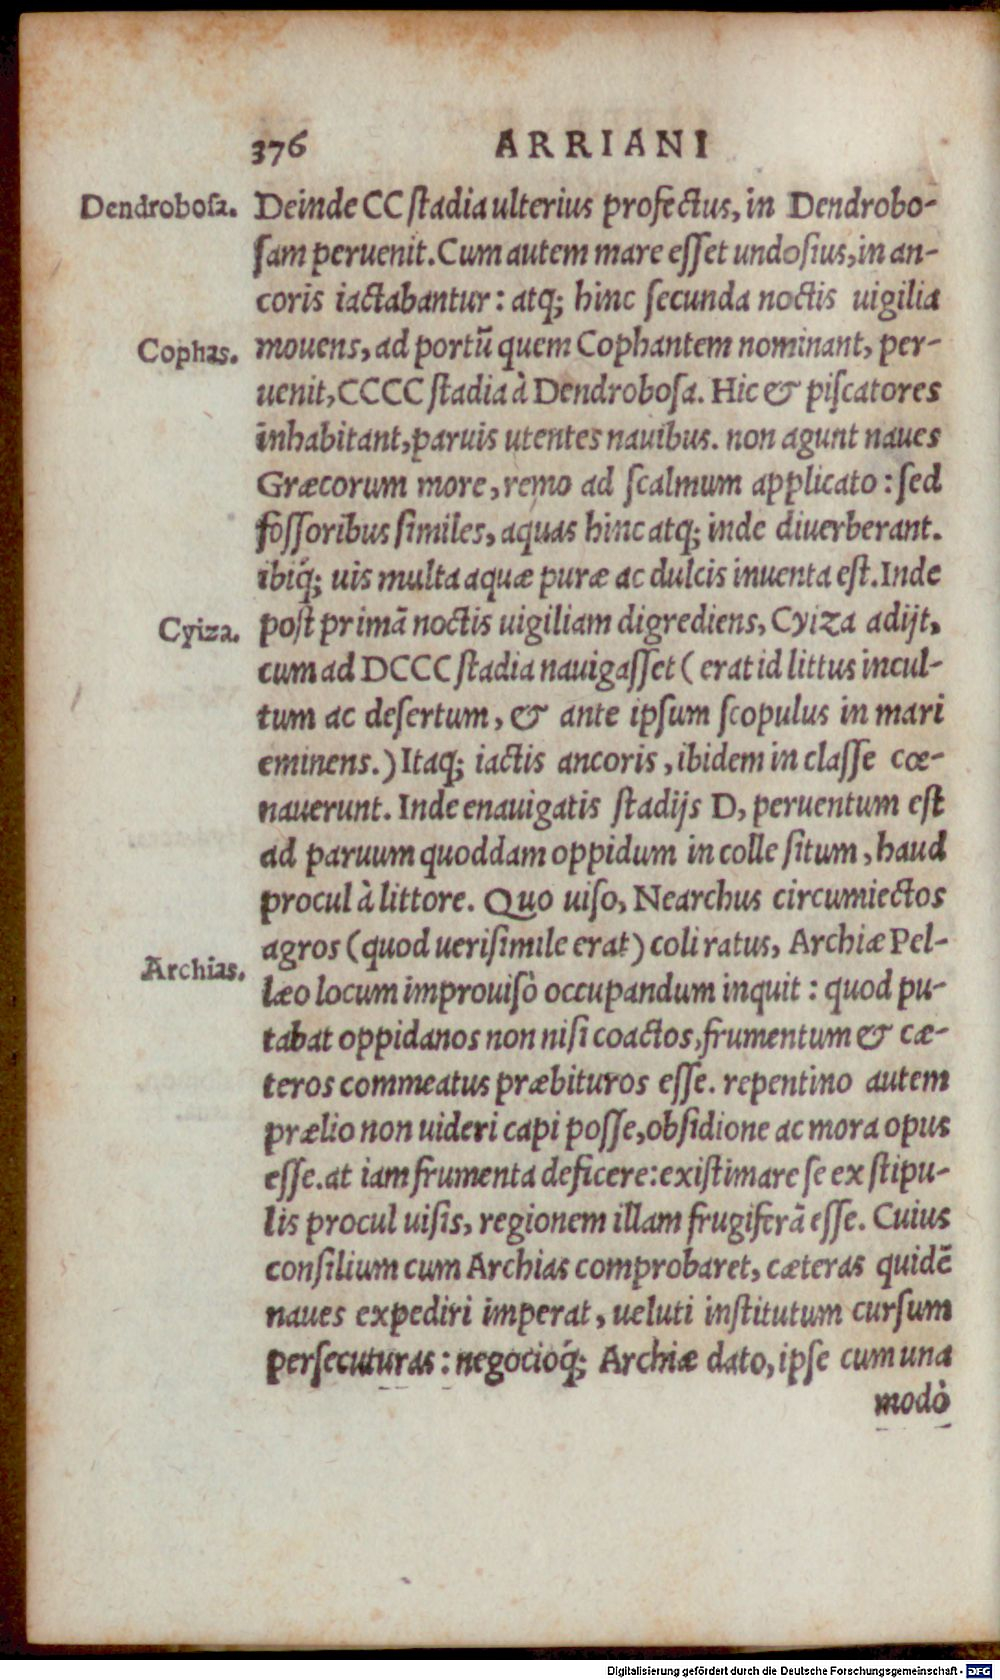 376 ARRIANI
Dendrobosa. Deinde CC stadia ulterius profectus, in Dendrobo-
sam peruenit. Cum autem mare esset undosius, in an-
coris iactabantur: atq; hinc secunda noctis uigilia
Cophas. mouens, ad portũ quem Cophantem nominant, per-
uenit, CCCC stadia à Dendrobosa. Hic & piscatores
inhabitant, paruis utentes nauibus. non agunt naues
Græcorum more, remo ad scalmum applicato: sed
fossoribus similes, aquas hinc atq; inde diuerberant.
ibiq́; uis multa aquæ puræ ac dulcis inuenta est. Inde
Cyiza. post primã noctis uigiliam digrediens, Cyiza adijt,
cum ad DCCC stadia nauigasset (erat id littus incul-
tum ac desertum, & ante ipsum scopulus in mari
eminens.) Itaq; iactis ancoris, ibidem in classe cœ-
nauerunt. Inde enauigatis stadijs D, peruentum est
ad paruum quoddam oppidum in colle situm, haud
procul à littore. Quo uiso, Nearchus circumiectos
agros (quod uerisimile erat) coli ratus, Archiæ Pel-
Archias. læo locum improuisò occupandum inquit: quod pu-
tabat oppidanos non nisi coactos, frumentum & cæ-
teros commeatus præbituros esse. repentino autem
prælio non uideri capi posse, obsidione ac mora opus
esse. at iam frumenta deficere: existimare se ex stipu-
lis procul uisis, regionem illam frugiferã esse. Cuius
consilium cum Archias comprobaret, cæteras quidẽ
naues expediri imperat, ueluti institutum cursum
persecuturas: negocioq́; Archiæ dato, ipse cum una
modò
Digitalisierung gefördert durch die Deutsche Forschungsgemeinschaft - DFG